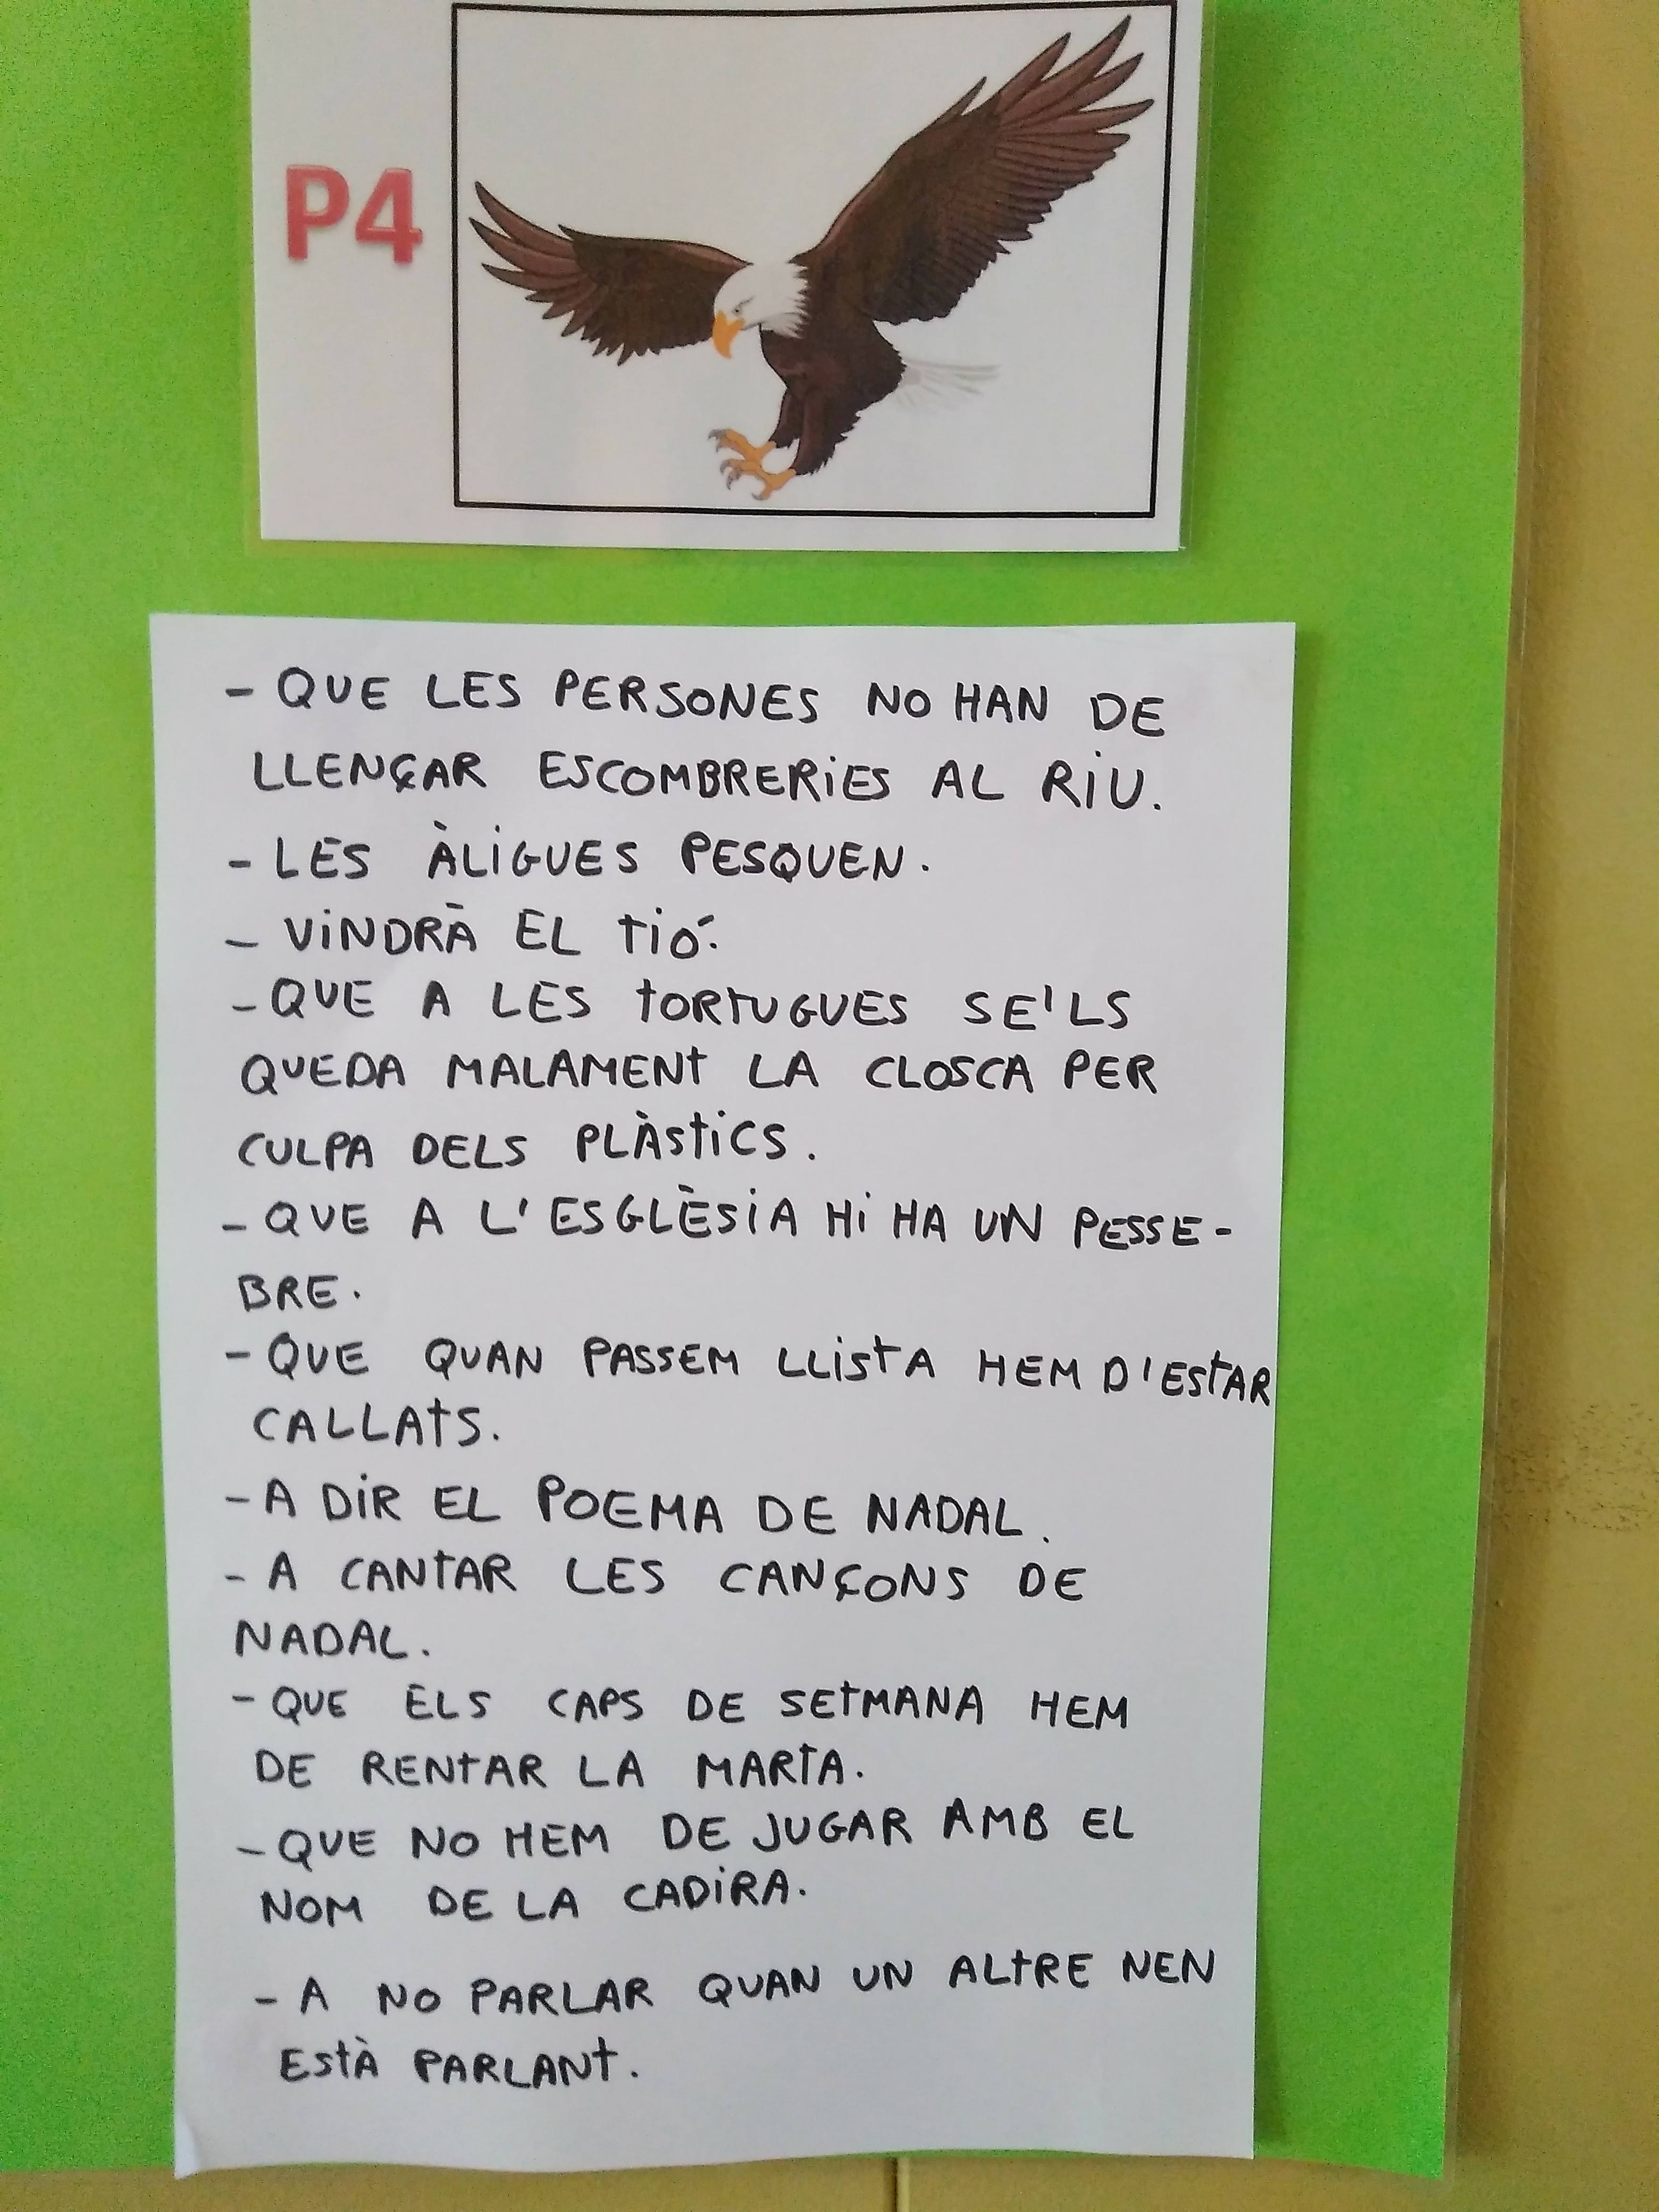 P4
- QUE LES PERSONES NO HAN DE
LLENÇAR ESCOMBRERIES AL RIU.
- LES ÀLIGUES PESQUEN.
- VINDRÀ EL TIÓ.
- QUE A LES TORTUGUES SE'LS
QUEDA MALAMENT LA CLOSCA PER
CULPA DELS PLÀSTICS.
- QUE A L'ESGLÈSIA HI HA UN PESSE-
BRE.
- QUE QUAN PASSEM LLISTA HEM D'ESTAR
CALLATS.
- A DIR EL POEMA DE NADAL.
- A CANTAR LES CANÇONS DE
NADAL.
- QUE ELS CAPS DE SETMANA HEM
DE RENTAR LA MARTA.
- QUE NO HEM DE JUGAR AMB EL
NOM DE LA CADIRA.
- A NO PARLAR QUAN UN ALTRE NEN
ESTÀ PARLANT.